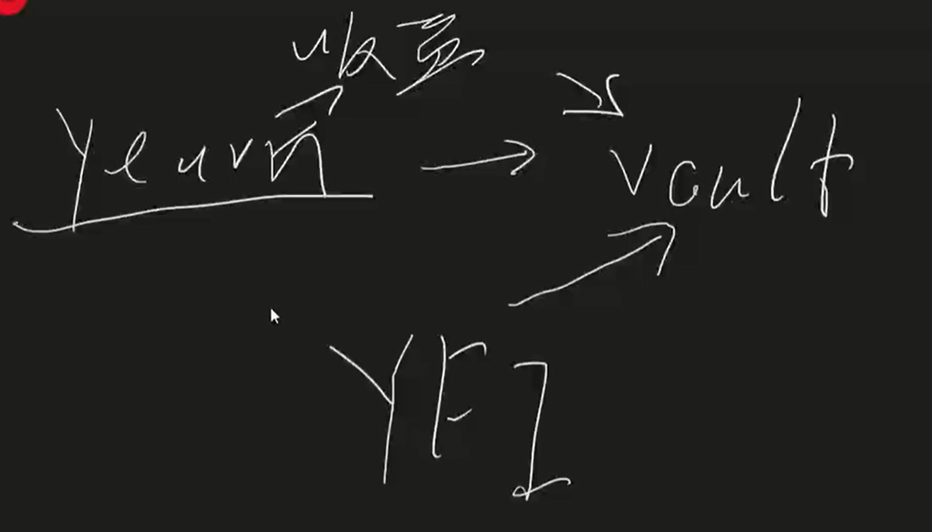 收益
Yearn → vault
YFI